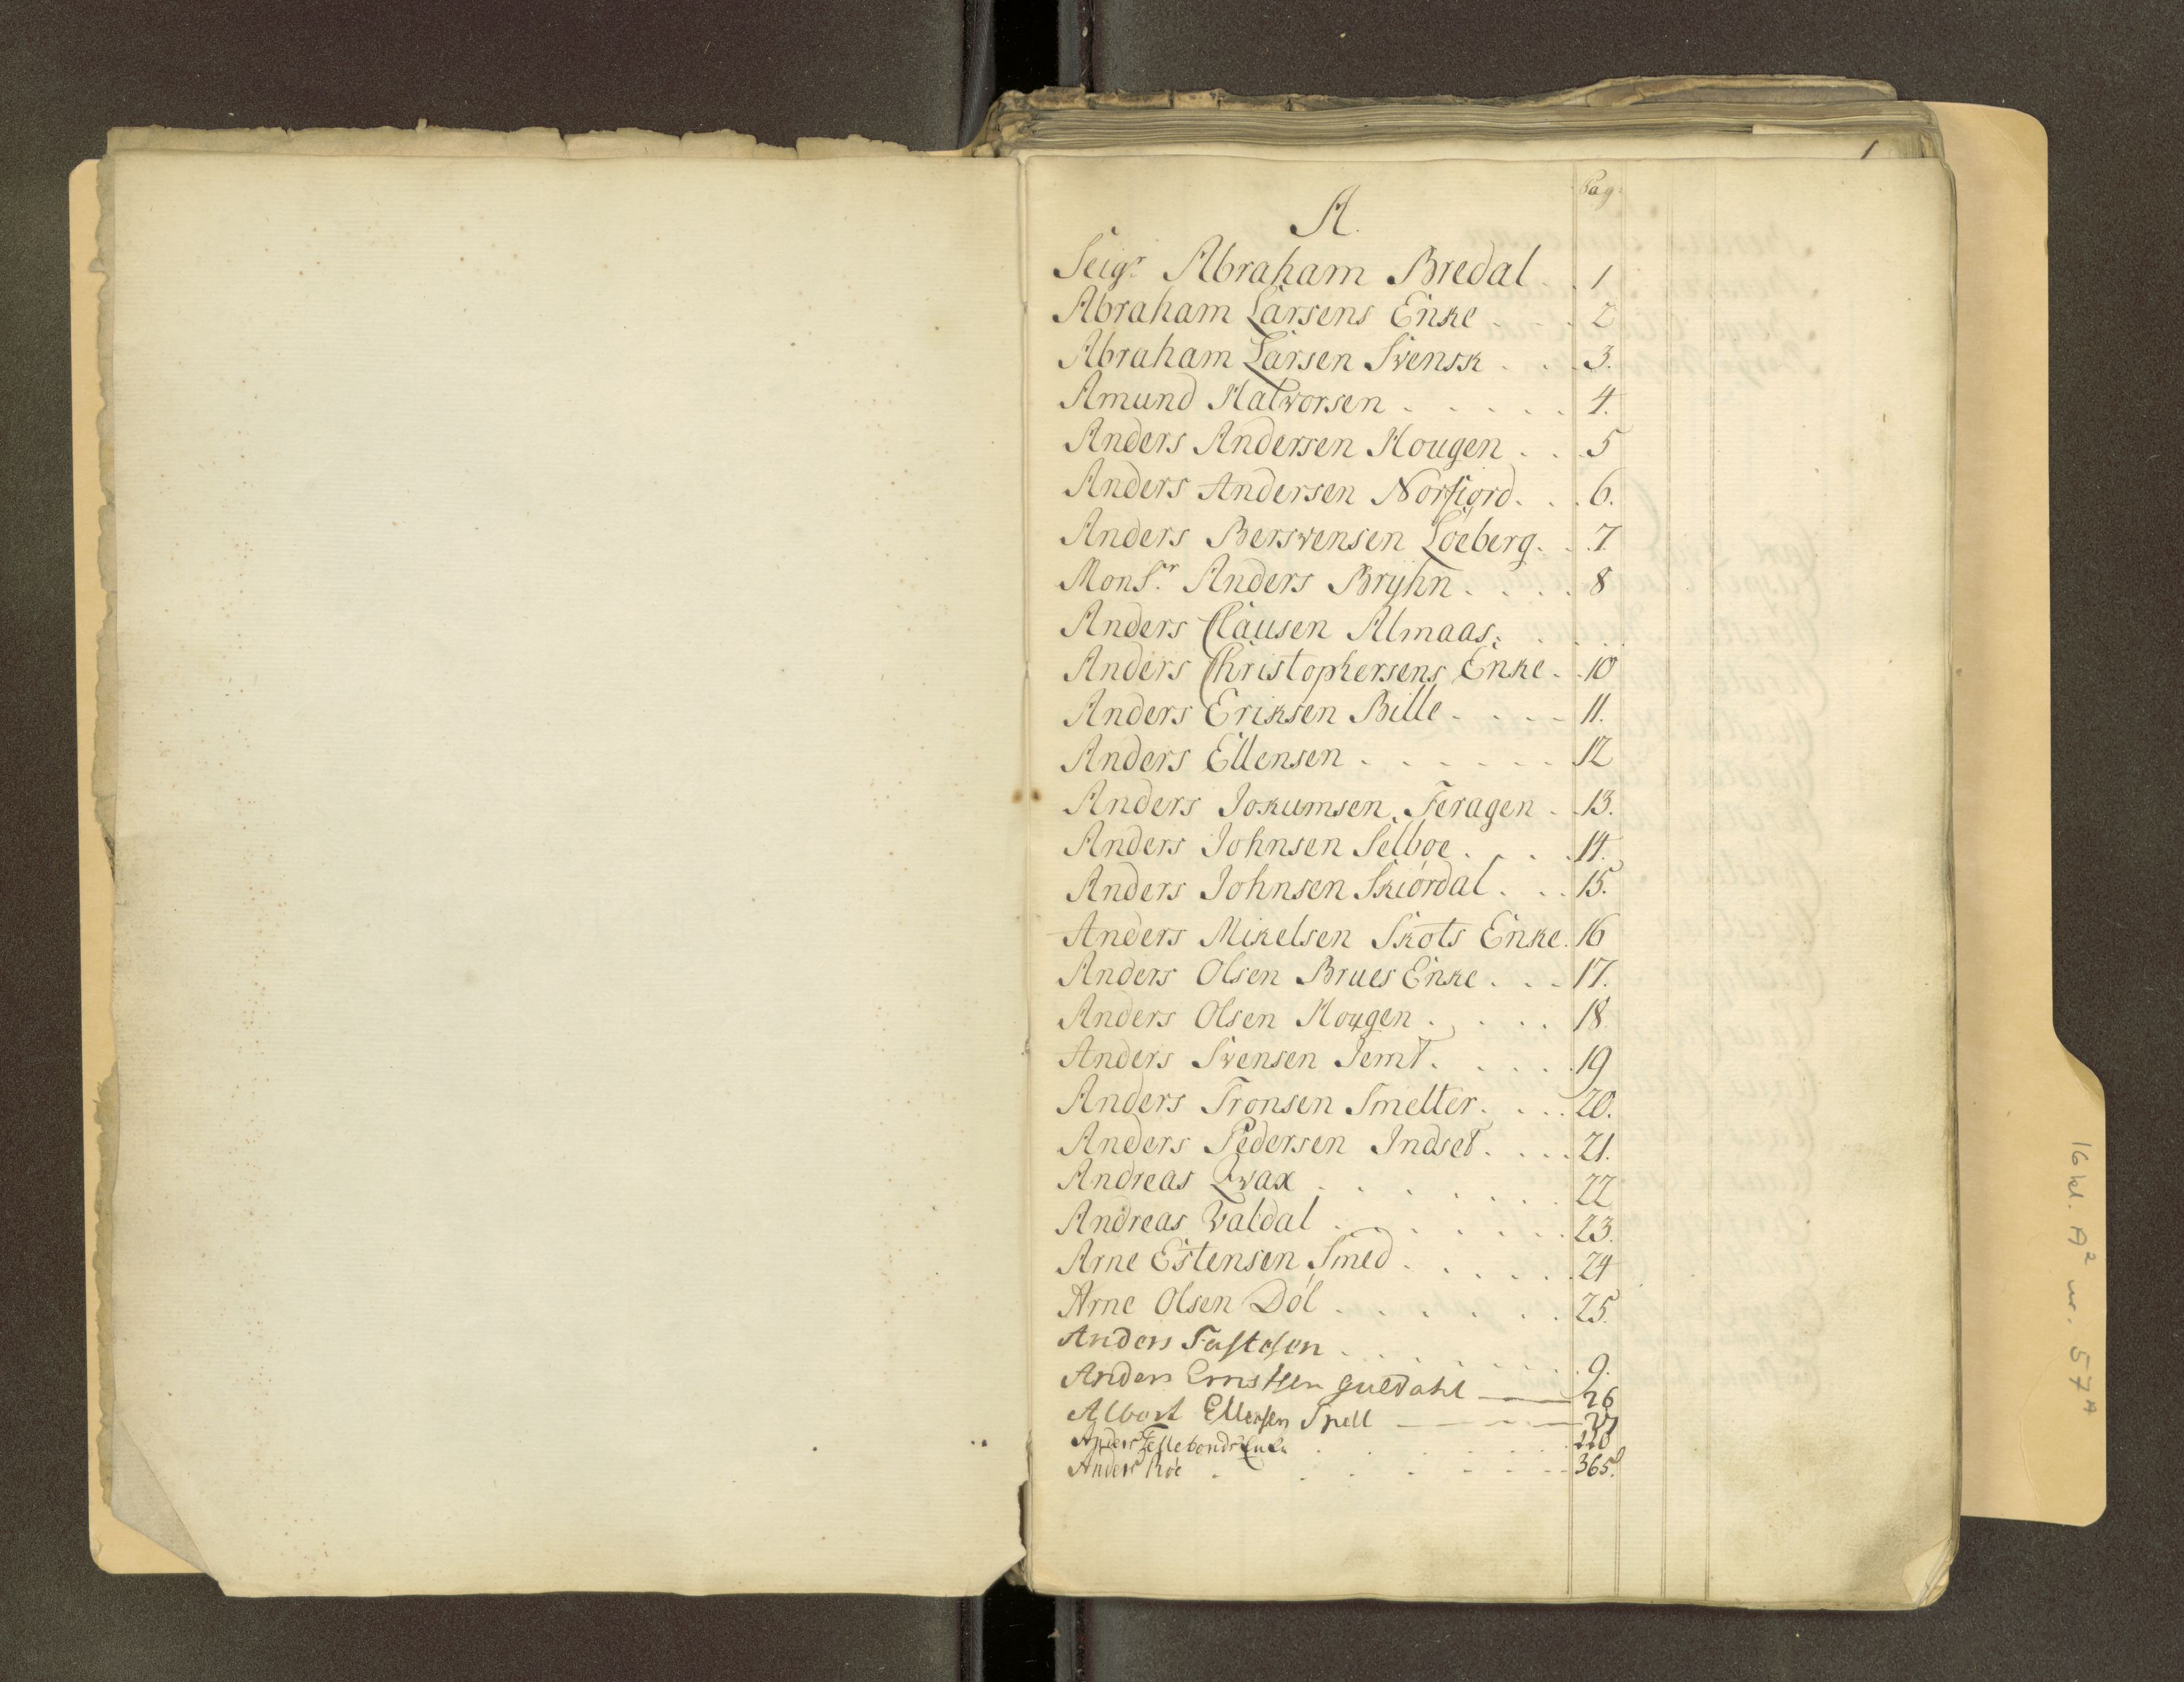 1
Pag:
A.
Seigr. Abraham Bredal . . 1
Abraham Larsens Enke . . . 2
Abraham Larsen Svensk . . . 3.
Amund Halvorsen . . . . . 4.
Anders Andersen Hougen . . 5
Anders Andersen Norfiord . . . 6.
Anders Bersvensen Löeberg. . . 7
Monsr. Anders Bryhn . . . . 8
Anders Clausen Almaas. . . .
Anders Christophersens Enke . . 10
Anders Eriksen Bille . . . . 11.
Anders Ellensen . . . . . . 12
Anders Jokumsen Feragen . . 13.
Anders Johnsen Selboe . . . . 14.
Anders Johnsen Skiórdal . . . 15.
Anders Mikelsen Skots Enke. 16
Anders Olsen Brues Enke . . . 17.
Anders Olsen Hougen . . . . 18
Anders Svensen Jemt . . . . 19
Anders Tronsen Smelter . . . . 20.
Anders Pedersen Indset . . . . 21.
Andreas Qvax . . . . . . . 22
Andreas Valdal . . . . . . 23.
Arne Estensen Smed . . . . . 24
Arne Olsen Döl . . . . . . 25.
Anders Fastesen . . . . . . . 9.
Anders Ernstsen Guldahl 26
Albort Ellensen Spell 27
Anders Enke . . . . . . 220
Anders Róe . . . . . . . 365.
16 kl. A² nr. 57 A